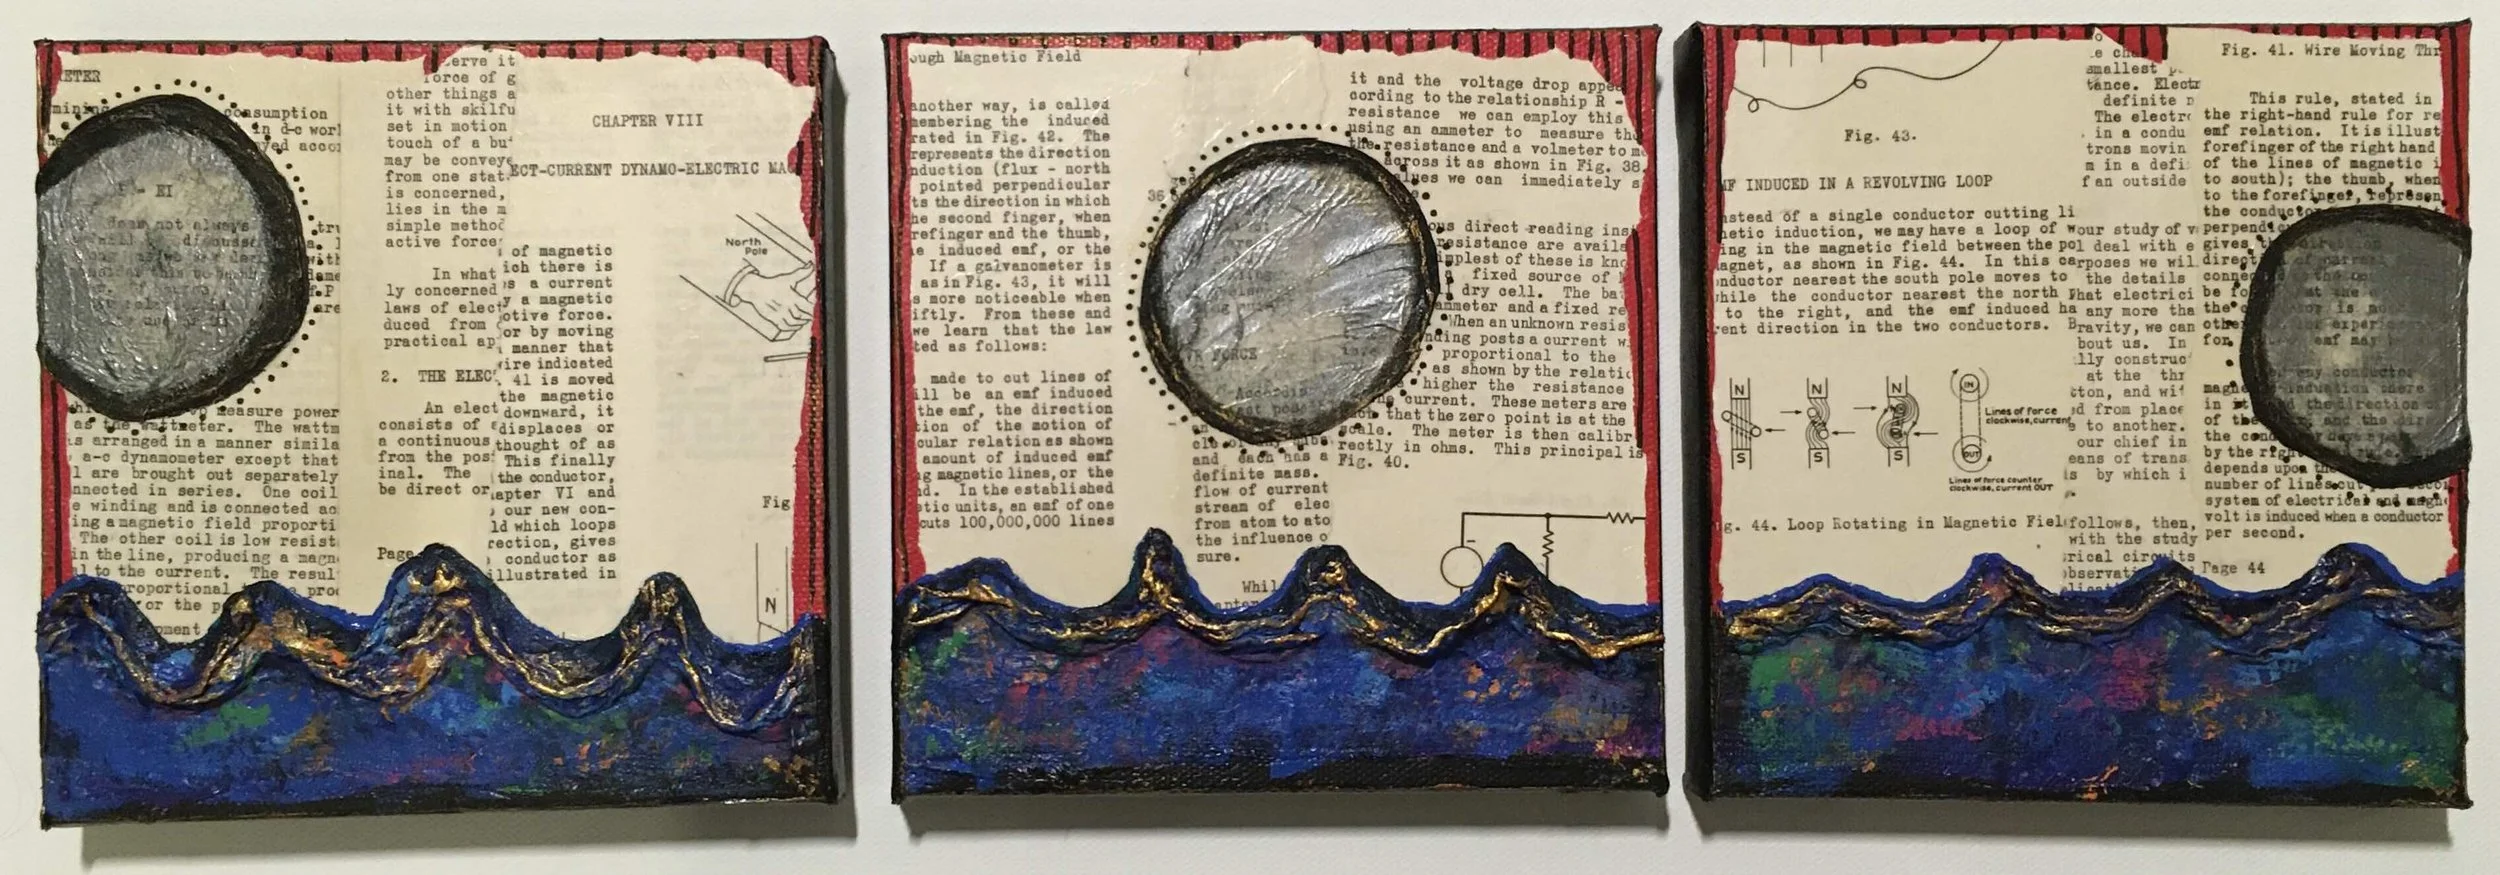 METER
consumption
in d-c worl
yed accor
P = EI
does not always
measure power
as the wattmeter. The wattm
s arranged in a manner simila
a-c dynamometer except that
l are brought out separately
nnected in series. One coil
e winding and is connected ac
ing a magnetic field proporti
The other coil is low resist
in the line, producing a magn
al to the current. The resul
proportional
or the p
serve it
force of g
other things a
it with skilfu
set in motion
touch of a bu
may be conveye
from one stat
is concerned,
lies in the m
simple method
active force
In what
ly concerned
laws of elect
duced from
practical ap
2. THE ELEC
An elect
consists of
a continuous
from the pos
inal. The
be direct or
Page
CHAPTER VIII
ECT-CURRENT DYNAMO-ELECTRIC MAC
of magnetic
ich there is
s a current
y a magnetic
otive force.
or by moving
manner that
wire indicated
41 is moved
the magnetic
downward, it
displaces or
thought of as
This finally
the conductor,
apter VI and
our new con-
ld which loops
rection, gives
conductor as
illustrated in
North
Pole
Fig
N
ough Magnetic Field
another way, is called
membering the induced
rated in Fig. 42. The
represents the direction
nduction (flux - north
pointed perpendicular
ts the direction in which
he second finger, when
refinger and the thumb,
e induced emf, or the
If a galvanometer is
as in Fig. 43, it will
s more noticeable when
iftly. From these and
we learn that the law
ted as follows:
made to cut lines of
ill be an emf induced
the emf, the direction
tion of the motion of
cular relation as shown
amount of induced emf
ng magnetic lines, or the
d. In the established
etic units, an emf of one
cuts 100,000,000 lines
36
FORCE
and each has a
definite mass.
flow of current
stream of elec
from atom to ato
the influence o
sure.
Whil
it and the voltage drop appe
cording to the relationship R -
resistance we can employ this
using an ammeter to measure th
the resistance and a volmeter to m
across it as shown in Fig. 38.
alues we can immediately s
ous direct reading ins
resistance are availa
implest of these is kno
a fixed source of
dry cell. The ba
ammeter and a fixed re
When an unknown resis
nding posts a current w
proportional to the
, as shown by the relati
higher the resistance
the current. These meters are
that the zero point is at the
scale. The meter is then calibr
rectly in ohms. This principal is
Fig. 40.
Fig. 43.
MF INDUCED IN A REVOLVING LOOP
nstead of a single conductor cutting li
netic induction, we may have a loop of w
ing in the magnetic field between the pol
agnet, as shown in Fig. 44. In this ca
nductor nearest the south pole moves to
while the conductor nearest the north
to the right, and the emf induced ha
rent direction in the two conductors.
N N N IN
Lines of force
clockwise, current
S S S OUT
Lines of force counter
clockwise, current OUT
g. 44. Loop Rotating in Magnetic Fiel
smallest
tance. Elect
definite
The electr
in a condu
trons movin
m in a defi
f an outside
our study of v
deal with e
rposes we wil
the details
hat electrici
any more tha
ravity, we can
bout us. In
lly construc
at the thr
tton, and wit
d from place
e to another.
our chief in
eans of trans
s by which i
follows, then,
with the study
rical circuits
observati
Fig. 41. Wire Moving Thr
This rule, stated in
the right-hand rule for re
emf relation. It is illust
forefinger of the right hand
of the lines of magnetic i
to south); the thumb, when
to the forefinger, represen
the conductor
gives
number of lines cut
system of electrical and magn
volt is induced when a conductor
per second.
Page 44